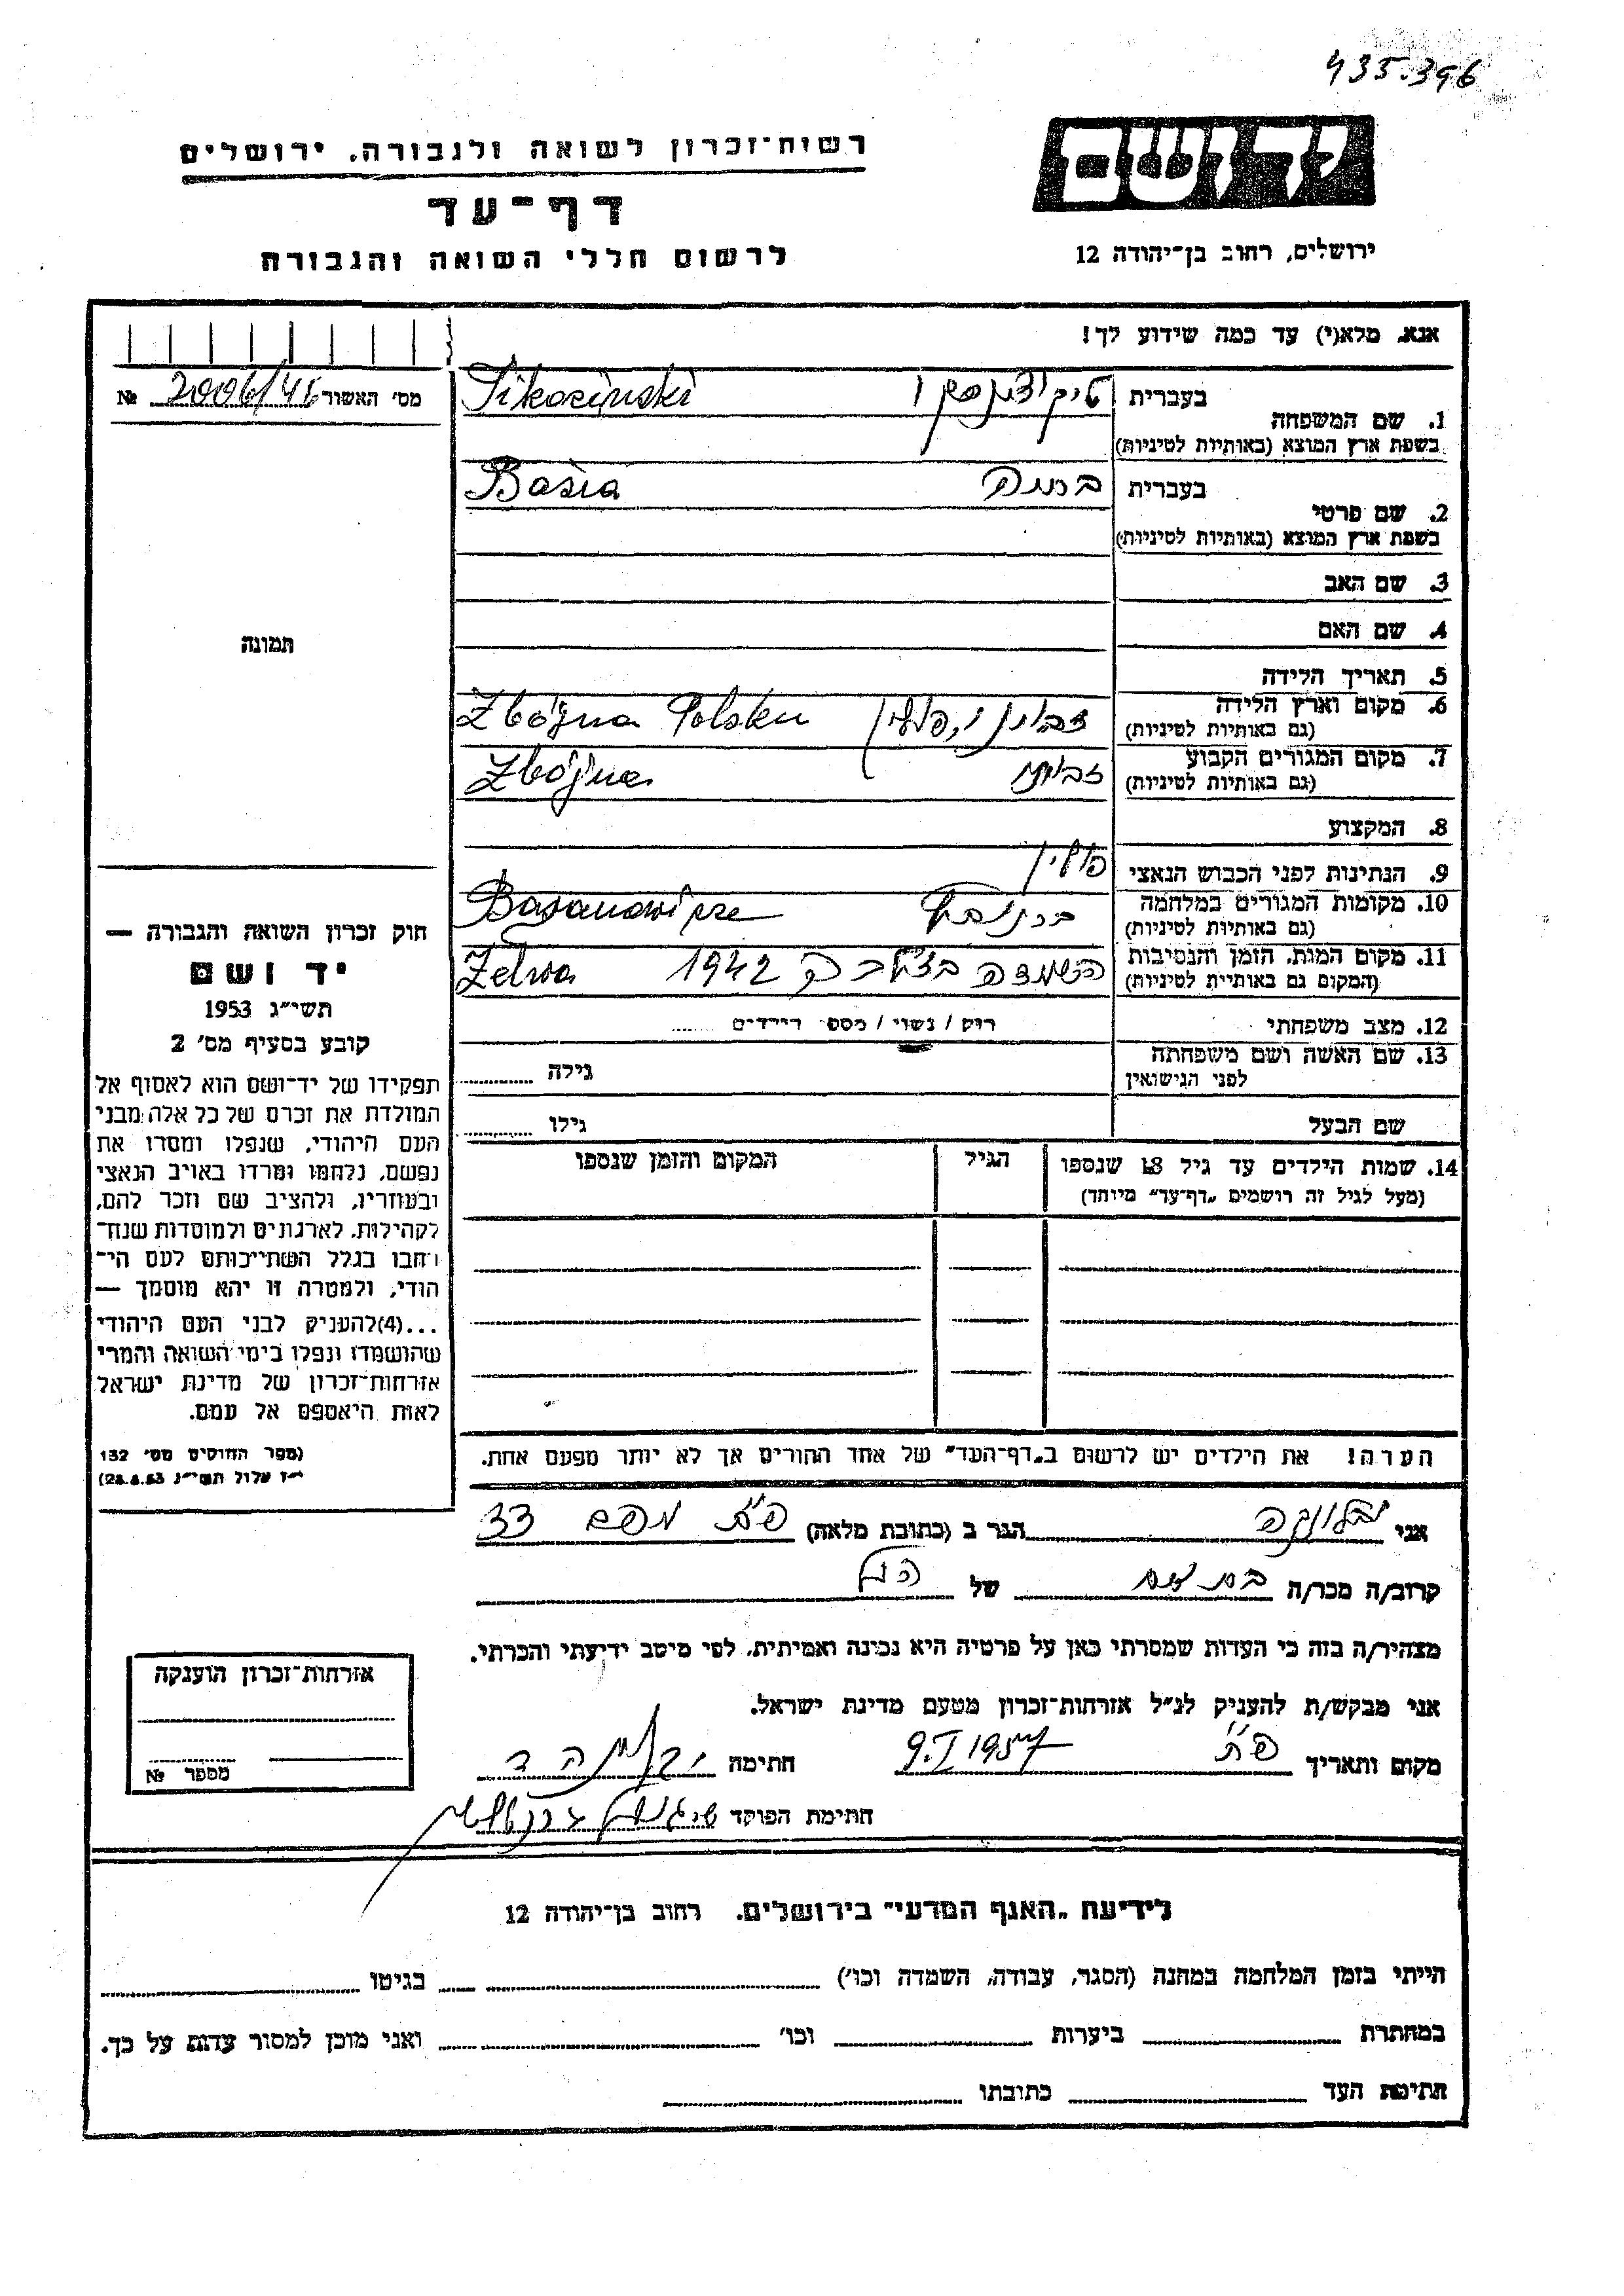 435.396
יד ושם
רשות־זכרון לשואה ולגבורה, ירושלים
דף־עד
לרשום חללי השואה והגבורה
ירושלים, רחוב בן־יהודה 12
אנא, מלא(י) עד כמה שידוע לך!
מס' האשור 2006/46 №
1. שם המשפחה
בעברית
בשפת ארץ המוצא (באותיות לטיניות)
Sikoziński
2. שם פרטי
בעברית
בשפת ארץ המוצא (באותיות לטיניות)
Basia
3. שם האב
4. שם האם
5. תאריך הלידה
6. מקום וארץ הלידה
(גם באותיות לטיניות)
Zbójna Polska
7. מקום המגורים הקבוע
(גם באותיות לטיניות)
Zbójna
8. המקצוע
9. הנתינות לפני הכבוש הנאצי פולין
10. מקומות המגורים במלחמה
(גם באותיות לטיניות)
11. מקום המות, הזמן והנסיבות
(המקום גם באותיות לטיניות)
הושמדה 1942 Zelwa
12. מצב משפחתי רוק / נשוי / מספר הילדים
13. שם האשה ושם משפחתה
לפני הנישואין
גילה
שם הבעל גילו
14. שמות הילדים עד גיל 18 שנספו
(מעל לגיל זה רושמים „דף־עד" מיוחד)
הגיל
המקום והזמן שנספו
הערה! את הילדים יש לרשום ב„דף־העד" של אחד ההורים אך לא יותר מפעם אחת.
תמונה
חוק זכרון השואה והגבורה —
יד ושם
תשי״ג 1953
קובע בסעיף מס' 2
תפקידו של יד־ושם הוא לאסוף אל
המולדת את זכרם של כל אלה מבני
העם היהודי, שנפלו ומסרו את
נפשם, נלחמו ומרדו באויב הנאצי
ובעוזריו, ולהציב שם וזכר להם,
לקהילות, לארגונים ולמוסדות שנח־
רבו בגלל השתייכותם לעם הי־
הודי, ולמטרה זו יהא מוסמך —
...(4)להעניק לבני העם היהודי
שהושמדו ונפלו בימי השואה והמרי
אזרחות־זכרון של מדינת ישראל
לאות היאספם אל עמם.
(ספר החוקים מס' 132
י״ז אלול תשי״ג 28.8.53)
אני יבלונקה הגר ב (כתובת מלאה) פ״ת 33
קרוב/ה מכר/ה בת דוד של הנ״ל
מצהיר/ה בזה כי העדות שמסרתי כאן על פרטיה היא נכונה ואמיתית, לפי מיטב ידיעתי והכרתי.
אני מבקש/ת להעניק לנ״ל אזרחות־זכרון מטעם מדינת ישראל.
מקום ותאריך פ״ת 9.I 1957 חתימה
חתימת הפוקד
אזרחות־זכרון הוענקה
מספר №
לידיעת „האגף המדעי" בירושלים, רחוב בן־יהודה 12
הייתי בזמן המלחמה במחנה (הסגר, עבודה, השמדה וכו') בגיטו
במחתרת ביערות וכו' ואני מוכן למסור עדות על כך.
חתימת העד כתובתו